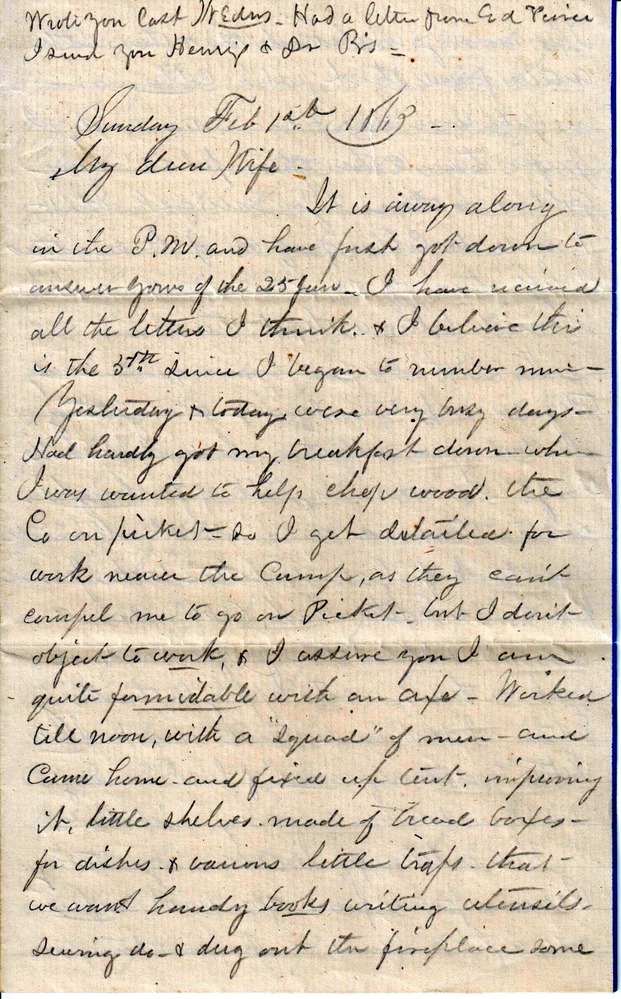 Wrote you last Wedns. Had a letter from Ed
I send you Henrys & Dr B's -
Sunday Feb 1st 1863 -
My dear Wife.
It is away along
in the P.M. and have just got down to
answer yours of the 25 Jan - I have received
all the letters I think. & I believe this
is the 3rd since I began to number mine -
Yesterday & today were very busy days -
Had hardly got my breakfast down - when
I was wanted to help chop wood. the
Co on picket - so I get detailed for
work nearer the Camp, as they can't
compel me to go on Picket - but I don't
object to work, & I assure you I am
quite formidable with an axe - Worked
till noon, with a "squad" of men - and
Came home - and fixed up tent. improving
it, little shelves made of bread boxes -
for dishes & various little traps that
we want handy books writing utensils -
sewing do - & dug out the fireplace some